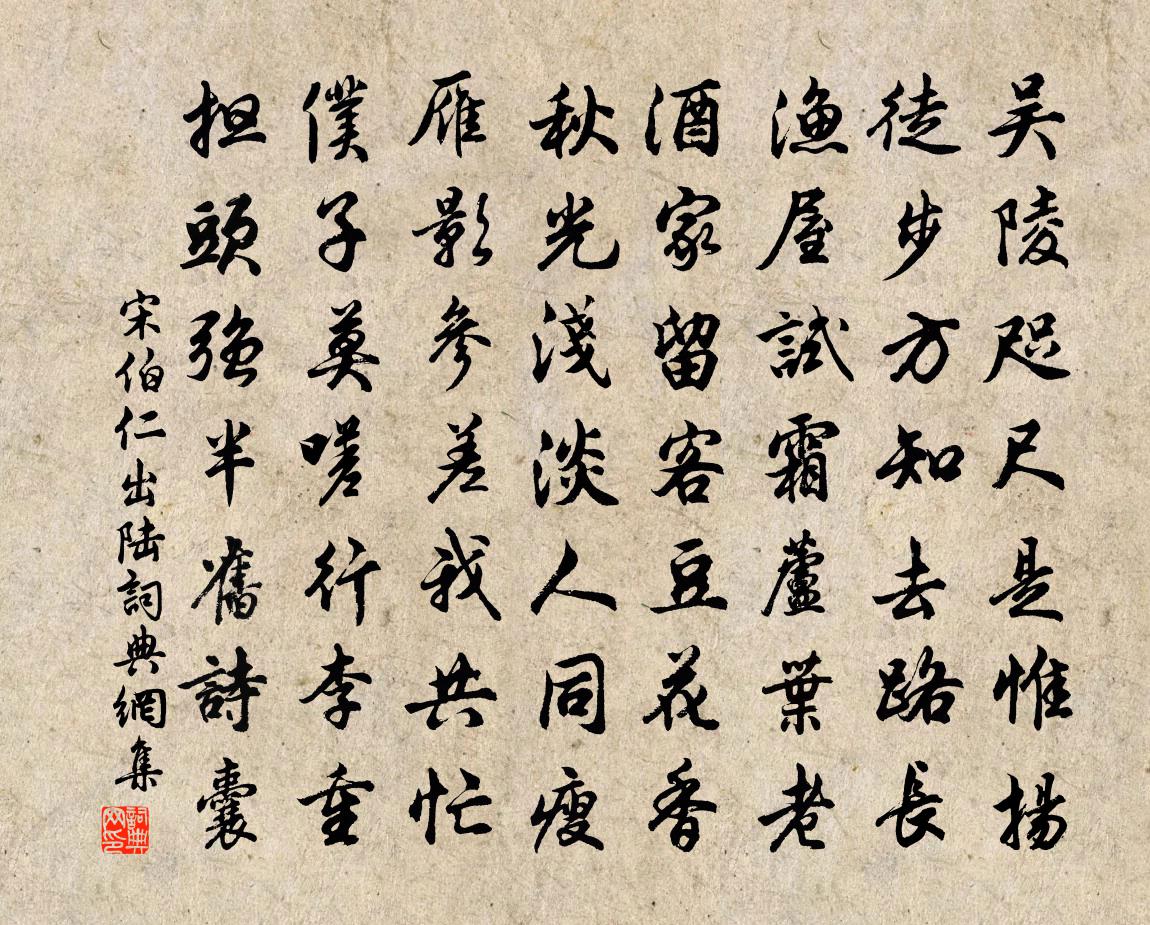 吴陵咫尺是惟揚
徒步方知去路長
漁屋試霜蘆葉老
酒家留客豆花香
秋光淺淡人同瘦
雁影參差我共忙
僕子莫嗟行李重
担頭强半舊詩囊
宋伯仁出陆詞典網集
詞典網印